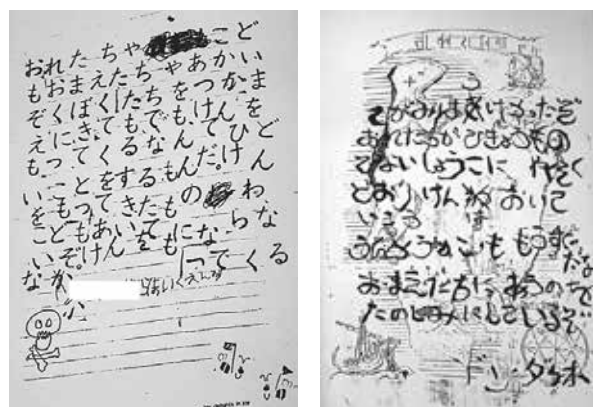 おれたちゃこど
もおまえたちゃあかい
ぞくぼくたちをつかま
えにきても、でも、けんを
もってくるなんてひど
いことをするもんだ。けん
をもってきたものわ
こどもあいてにならな
いぞ。けんをもってくる
な
おれたちがひきょうもの
でないしょうこに
どおりけんわおいて
いこう
もうすぐだな
おまえたちにあうのを
たのしみにしているぞ